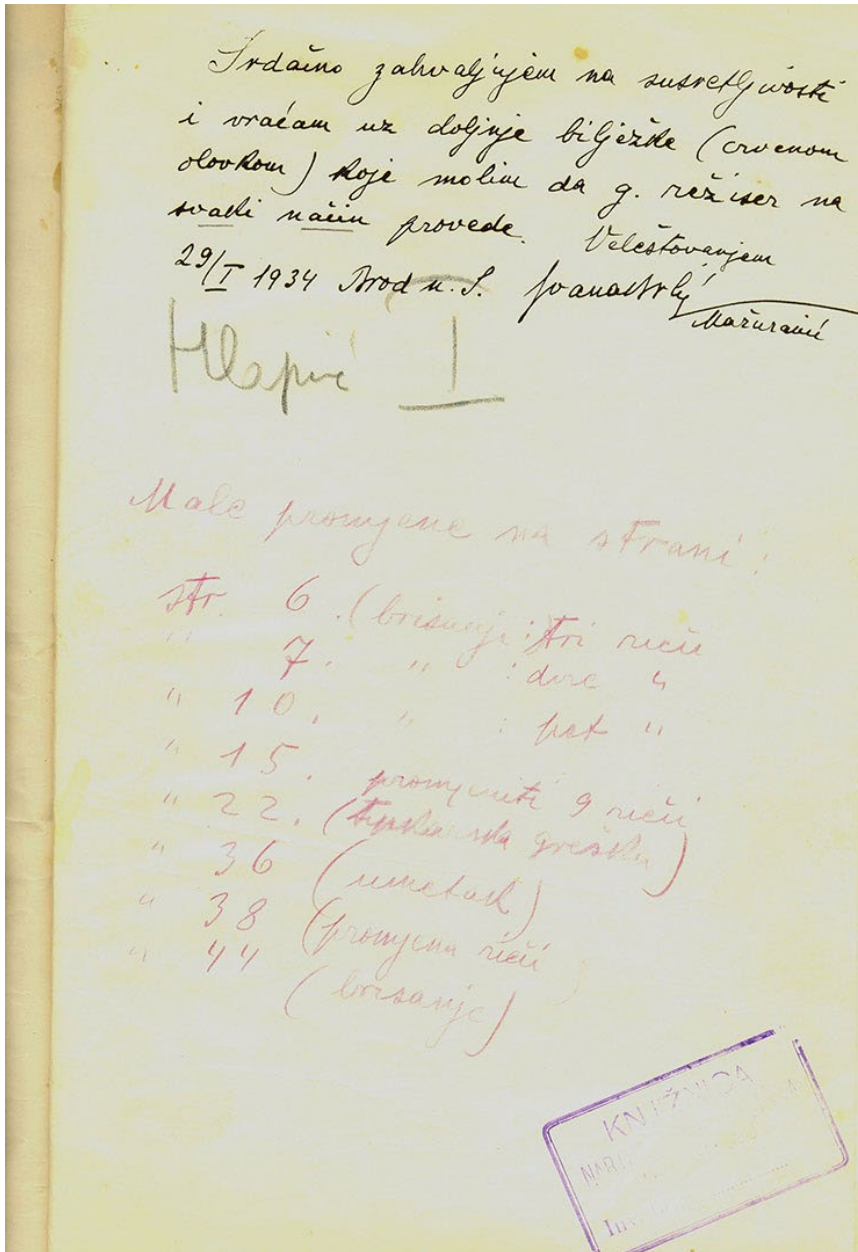 Srdačno zahvaljujem na susretljivosti
i vraćam uz doljnje bilježke (crvenom
olovkom) koje molim da g. režiser na
svaki način provede. Veleštovanjem
29/I 1934 Brod n. S. Ivana Brlić
Mažuranić
Hlapić I
Male promjene na strani:
str. 6. (brisanje: tri rieči
" 7. " : dvie "
" 10. " : pet "
" 15. promjeniti 9 rieči
" 22. (tipkarska greška)
" 36 (umetak)
" 38 (promjena rieči)
" 44 (brisanje)
KNJIŽNICA